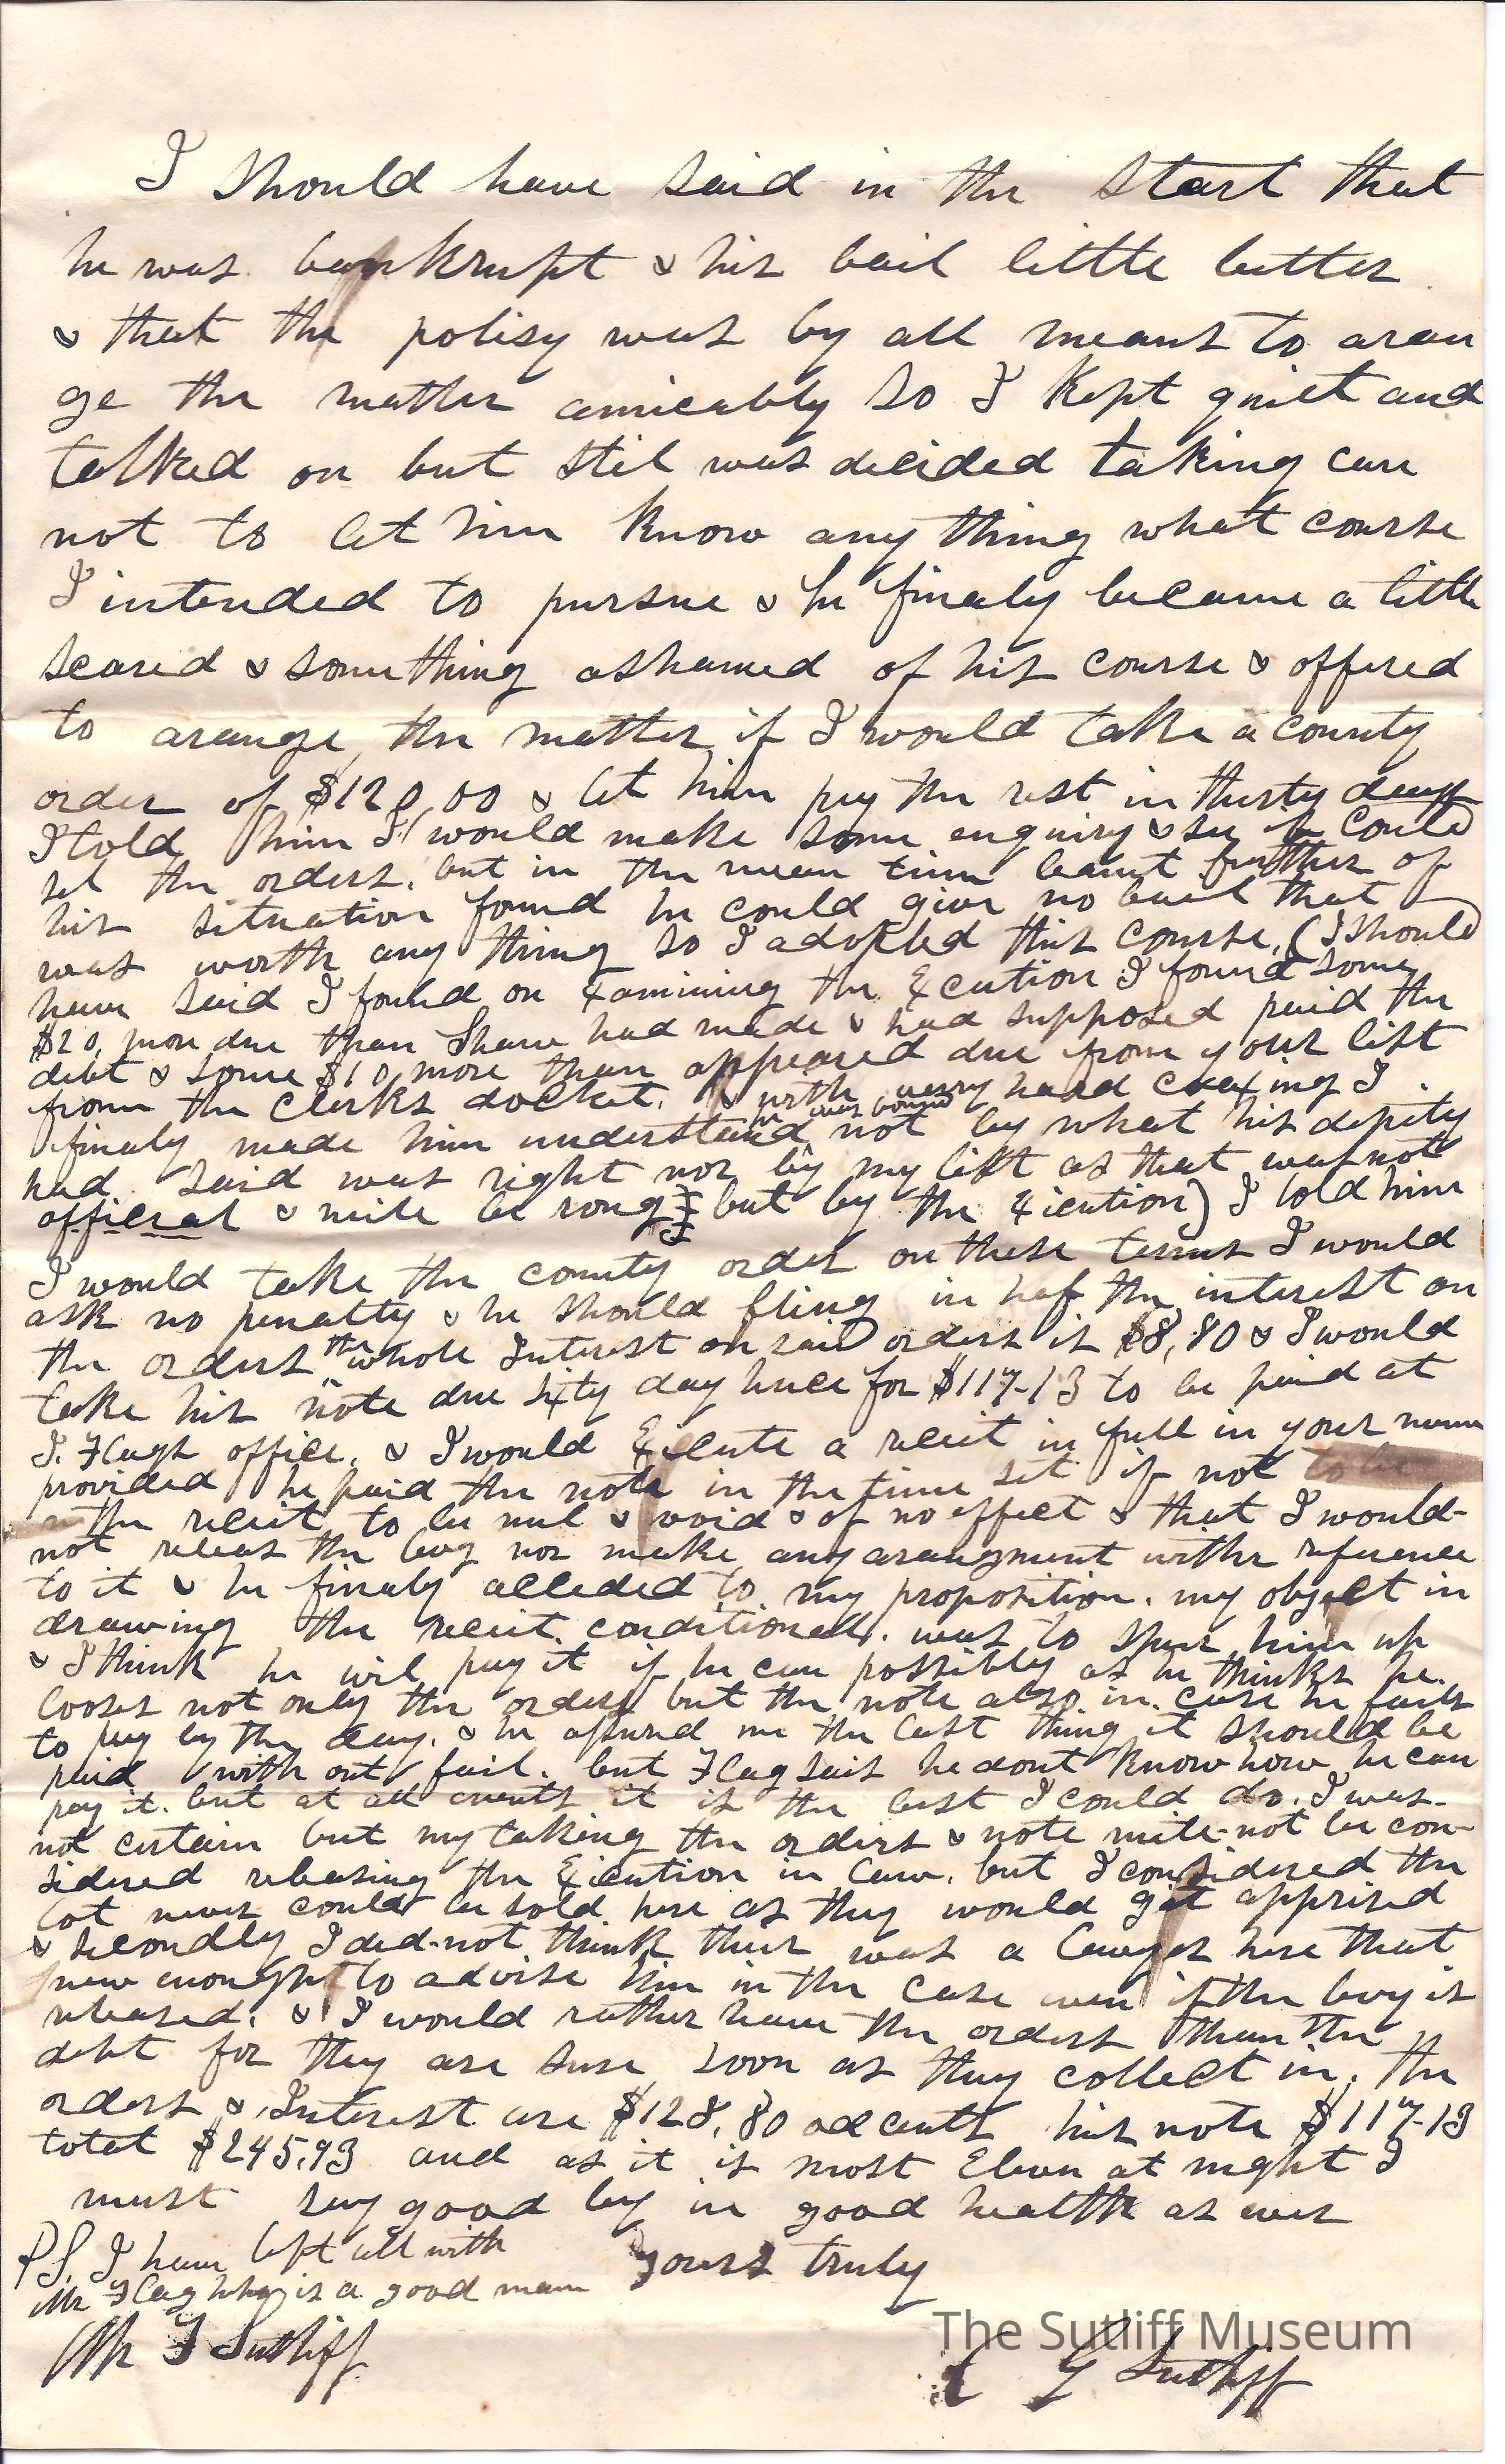 I should have said in the start that
he was bankrupt & his bail little better
& that the polisy was by all means to aran
ge the matter amicably so I kept quiet and
talked on but stil was decided taking care
not to let him know any thing what course
I intended to pursue & he finaly became a little
scared & something ashamed of his course & offered
to arange the matter if I would take a county
order of $120,00 & let him pay the rest in thirty days
I told him I would make some enquiry & see if I could
sel the orders. but in the mean time learnt further of
his situation found he could give no bail that
was worth any thing so I adopted this course, (I should
have said I found on Examining the Execution I found some
$20, more due than Shaw had made & had supposed paid the
debt & some $10, more than appeared due from your list
from the clerks docket. & with verry hard coaxing I
finaly made him understand he was bound not by what his depity
had said was right nor by my list as that was not
official & mite be rong but by the Execution) I told him
I would take the county order on these terms I would
ask no penalty & he should fling in haf the interest on
the orders the whole Interest on said orders is $8,80 & I would
take his note due sixty day hence for $117-13 to be paid at
I. Flags office. & I would Execute a receit in full in your name
provided he paid the note in the time set if not
the receit to be nul & void & of no effect & that I would
not releas the levy nor make any arangment withe reference
to it & he finaly acceded to my proposition. my object in
drawing the receit conditional. was to spur him up
& I think he wil pay it if he can possibly as he thinks he
looses not only the orders but the note also in case he fails
to pay by the day. & he assured me the last thing it should be
paid with out fail. but Flag sais he dont know how he can
pay it. but at all events it is the best I could do. I was
not certain but my taking the orders & note mite not be con-
sidered releasing the Execution in Law. but I considered the
lot never could be sold here as they would get apprised
& secondly I did not think thair was a Lawyer here that
new enought to advise him in the case even if the levy is
released. & I would rather have the orders than the
debt for they are sure soon as they collect in. the
orders & Interest are $128,80 ad cents his note $117-13
total $245,93 and as it is most Eleven at night I
must say good by in good health as ever
yours truly
PS. I have left all with
Mr Flag who is a good man
Mr F Sutliff
C G Sutliff
The Sutliff Museum